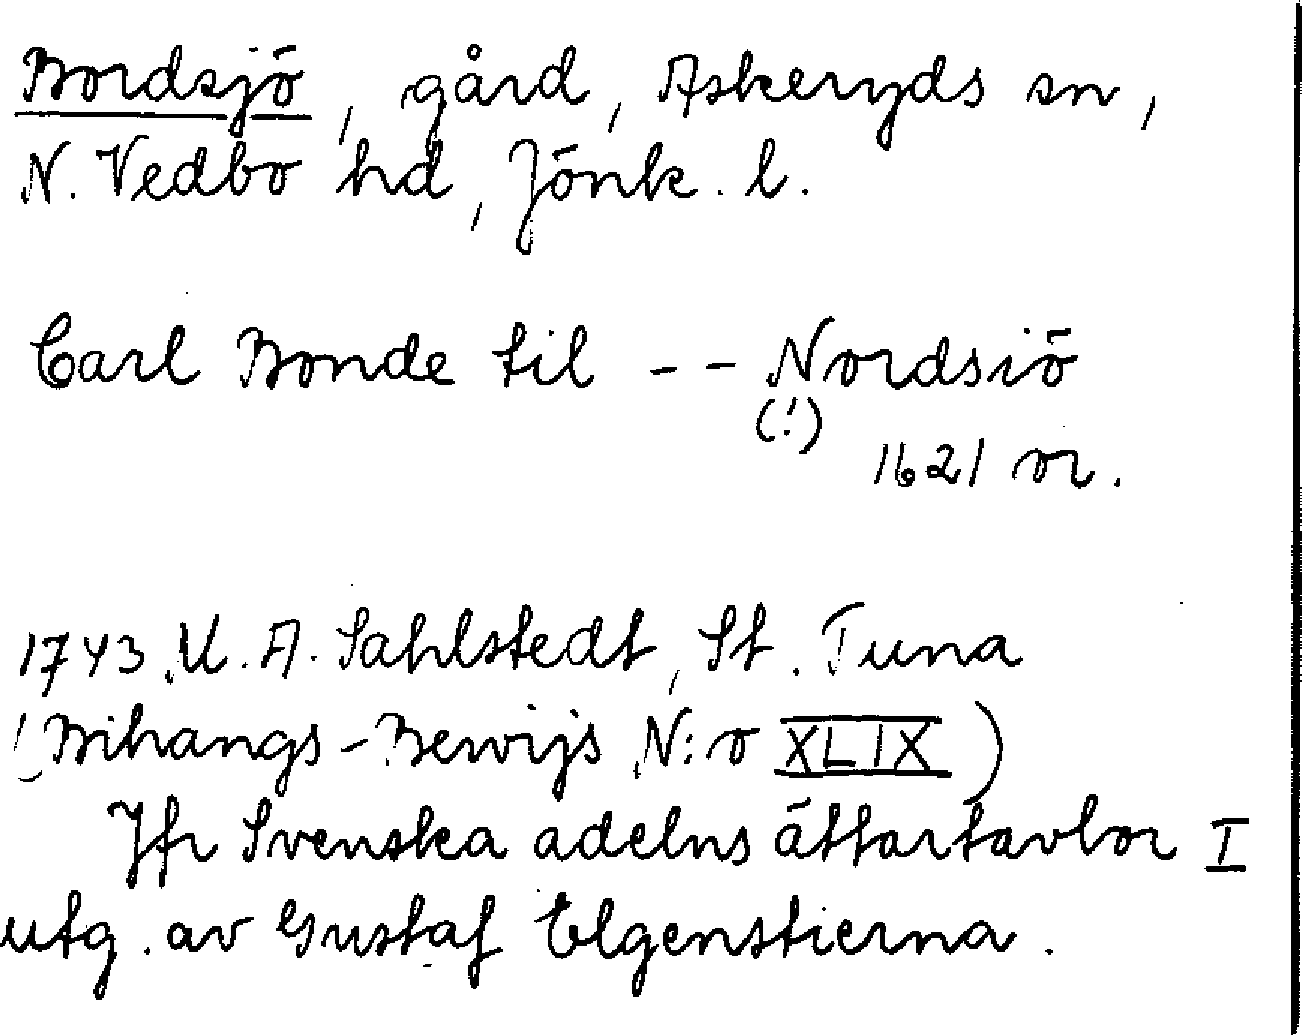 Bordsjö, gård, Askeryds sn,
N. Vedbo hd, Jönk. l.
Carl Bonde til -- Nordsiö
(!)
1621 or.
1743. U. A. Sahlstedt, St. Tuna
(Bihangs-Bewijs N:o XLIX)
Jfr Svenska adelns ättartavlor I
utg. av Gustaf Elgenstierna.